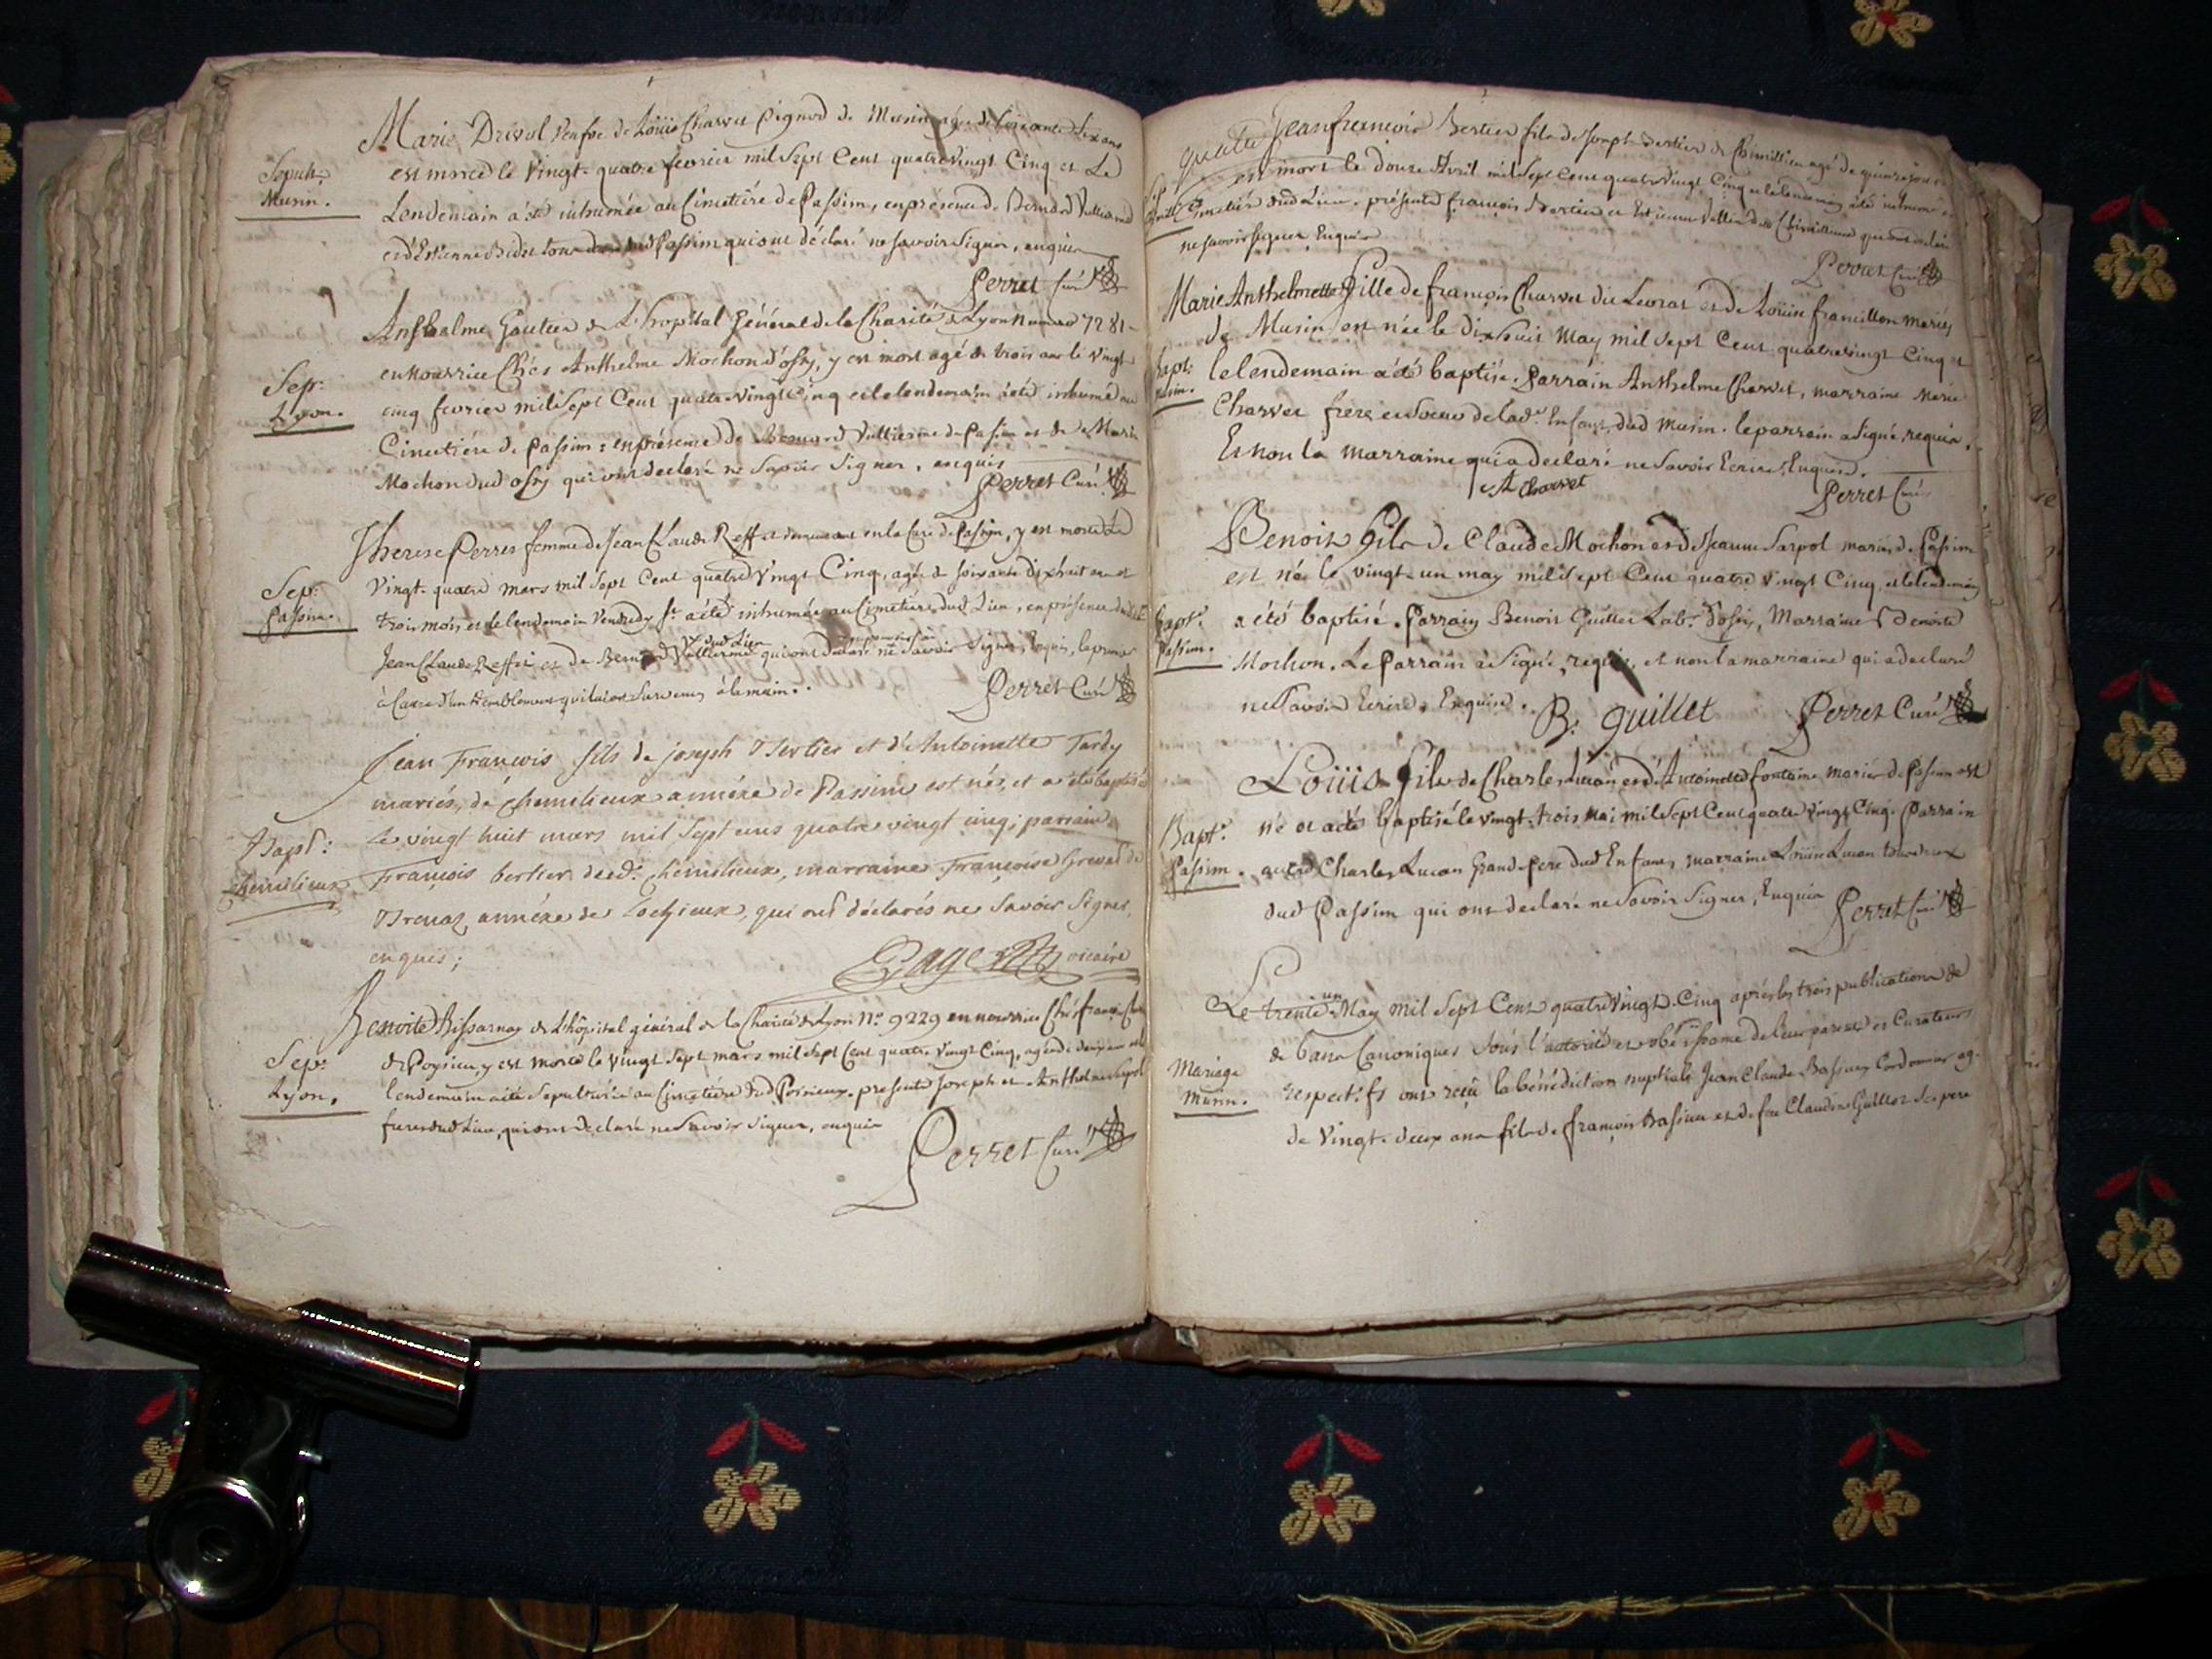 Marie Drevol veufve de Loüis Charvet Pignod de Musin, agée de soixante dix ans
Sepult.
est morte le vingt-quatre fevrier mil sept cent quatre vingt cinq et Le
Musin.
Lendemain a été inhumée au Cimetière de Passim, en présence de Bernard Vullierme
et d'Estienne Bidet tous dud Passim qui ont déclaré ne savoir signer, enquis
Perret Curé
Anthelme Gautier de L'hopital Général de la Charité de Lyon numero 7281
en nourrice Chés Anthelme Mochon d'ossy, y est mort agé de trois ans le vingt
Sep:
cinq fevrier mil sept Cent quatre vingt cinq et le lendemain a été inhumé au
Lyon.
Cimetière de Passim: en présence de Bernard Vullierme de Passim et de Marin
Mochon dud ossy qui ont declaré ne savoir signer, enquis
Perret Curé
Therese Perret femme de Jean Claude Reffet demeurant en la Cure de Passim, y est morte Le
Sep:
vingt-quatre mars mil sept Cent quatre vingt Cinq, agée de soixante dix huit ans et
Passim.
trois mois et le lendemain vendredy st a été inhumée au Cimetière dud Lieu, en présence dud
dud Lieu
Jean Claude Reffet et de Bernard Vullierme qui ont declaré ne savoir signer, enquis, le premier
à Cause d'un tremblement qui lui est survenu à la main.
Perret Curé
Jean François fils de joseph Bertier et d'Antoinette Tardy
mariés, de chemilieux annéxe de Passim est nés, et a été baptisé
Bapt:
Le vingt huit mars mil sept cens quatre vingt cinq; parrain
chemilieux
François bertier dud: chemilieux, marraine Françoise Grevat de
Brenaz, annéxe de Lochieux, qui ont déclarés ne savoir signer,
enquis;
Page vicaire
Benoite Bissarnay de L'hôpital général de la Charité de Lyon N° 9229 en nourrice Chés françois
Sep:
de Poysieu, y est morte le vingt sept mars mil sept Cent quatre vingt Cinq, agée de deux ans et le
Lyon.
lendemain a été sepulturée au Cimetière dud Poisieux. presents Joseph et Anthelme Sarpol
freres dud Lieu, qui ont declaré ne savoir signer, enquis
Perret Curé
Jean francois Bertier fils de Joseph Bertier de Chimillieu agé de quinze jours
est mort le douze Avril mil sept Cent quatre vingt Cinq et le lendemain a été inhumé au
Cimetière dud Lieu. présents françois Bertier et Estienne dud Chimillieu qui ont declaré
ne savoir signer Enquis
Perret Curé
Marie Anthelmette fille de françois Charvet du Levrat et de Loüise francillon mariés
de Musin est née le dix huit May mil sept Cent quatre vingt Cinq et
Bapt:
le lendemain a été baptisée. Parrain Anthelme Charvet, marraine Marie
Musin.
Charvet frere et soeur de lad. Enfant, dud Musin. le parrain a signé, requis.
Et non la marraine qui a declaré ne savoir Ecrire, Enquise.
A Charvet
Perret Curé
Benoit fils de Claude Mochon et de Jeanne Sarpol mariés de Passim
est né le vingt-un may mil sept Cent quatre vingt Cinq, et le lendemain
Bapt:
a été baptisé. Parrain Benoit Guillet Labr. d'ossy, Marraine Benoite
Passim.
Mochon. Le Parrain a signé, requis, et non la marraine qui a declaré
ne savoir Ecrire, Enquise.
B: guillet
Perret Curé
Loüis fils de Charles Lucan et d'Antoinette fontaine mariés de Passim est
Bapt:
né et a été baptisé le vingt-trois Mai mil sept Cent quatre vingt Cinq. Parrain
Passim.
autre Charles Lucan Grand-père dud Enfant, marraine Loüise Lucan tous deux
dud Passim qui ont declaré ne savoir signer, Enquis
Perret Curé
un
Le trente May mil sept Cent quatre vingt Cinq après les trois publications de
de bans Canoniques sous l'autorité et obéissance de leur parens et Curateurs
Mariage
respectifs ont reçu la bénédiction nuptiale Jean Claude Bassieu Cordonnier agé
Musin.
de vingt-deux ans fils de françois Bassieu et de feu Claudine Guillot ses pere